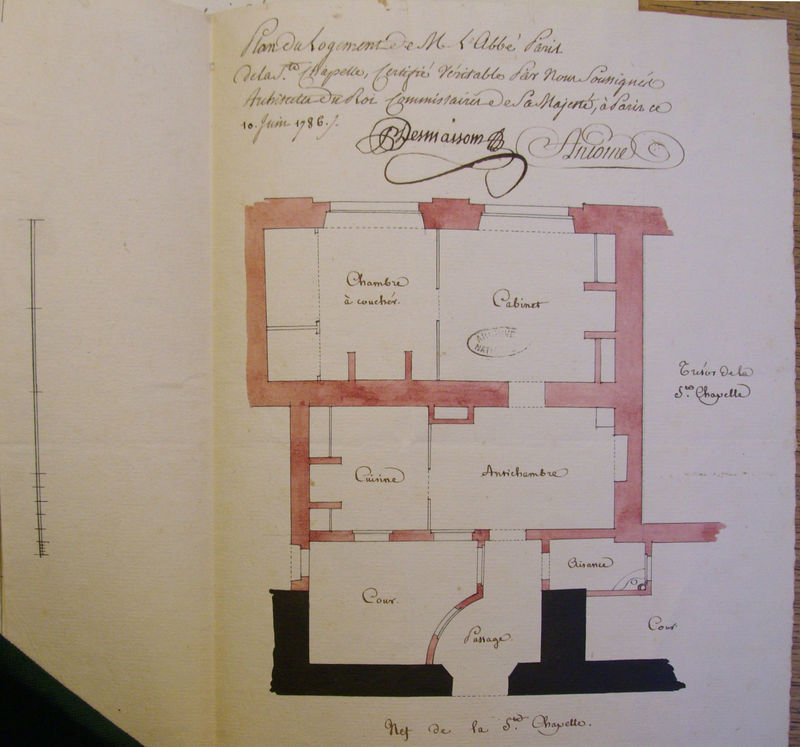 Plan du Logement de M. L'Abbé Paris
de la Ste. Chapelle, Certifié Véritable Par Nous Soussignés
Architectes du Roi Commissaires de Sa Majesté, à Paris ce
10. Juin 1786./.
Desmaisons Antoine
Chambre
à couchér.
Cabinet
Trésor de la
Ste. Chapelle
Cuisine
Antichambre
Aisance
Cour.
Passage.
Cour
Nef de la Ste. Chapelle.